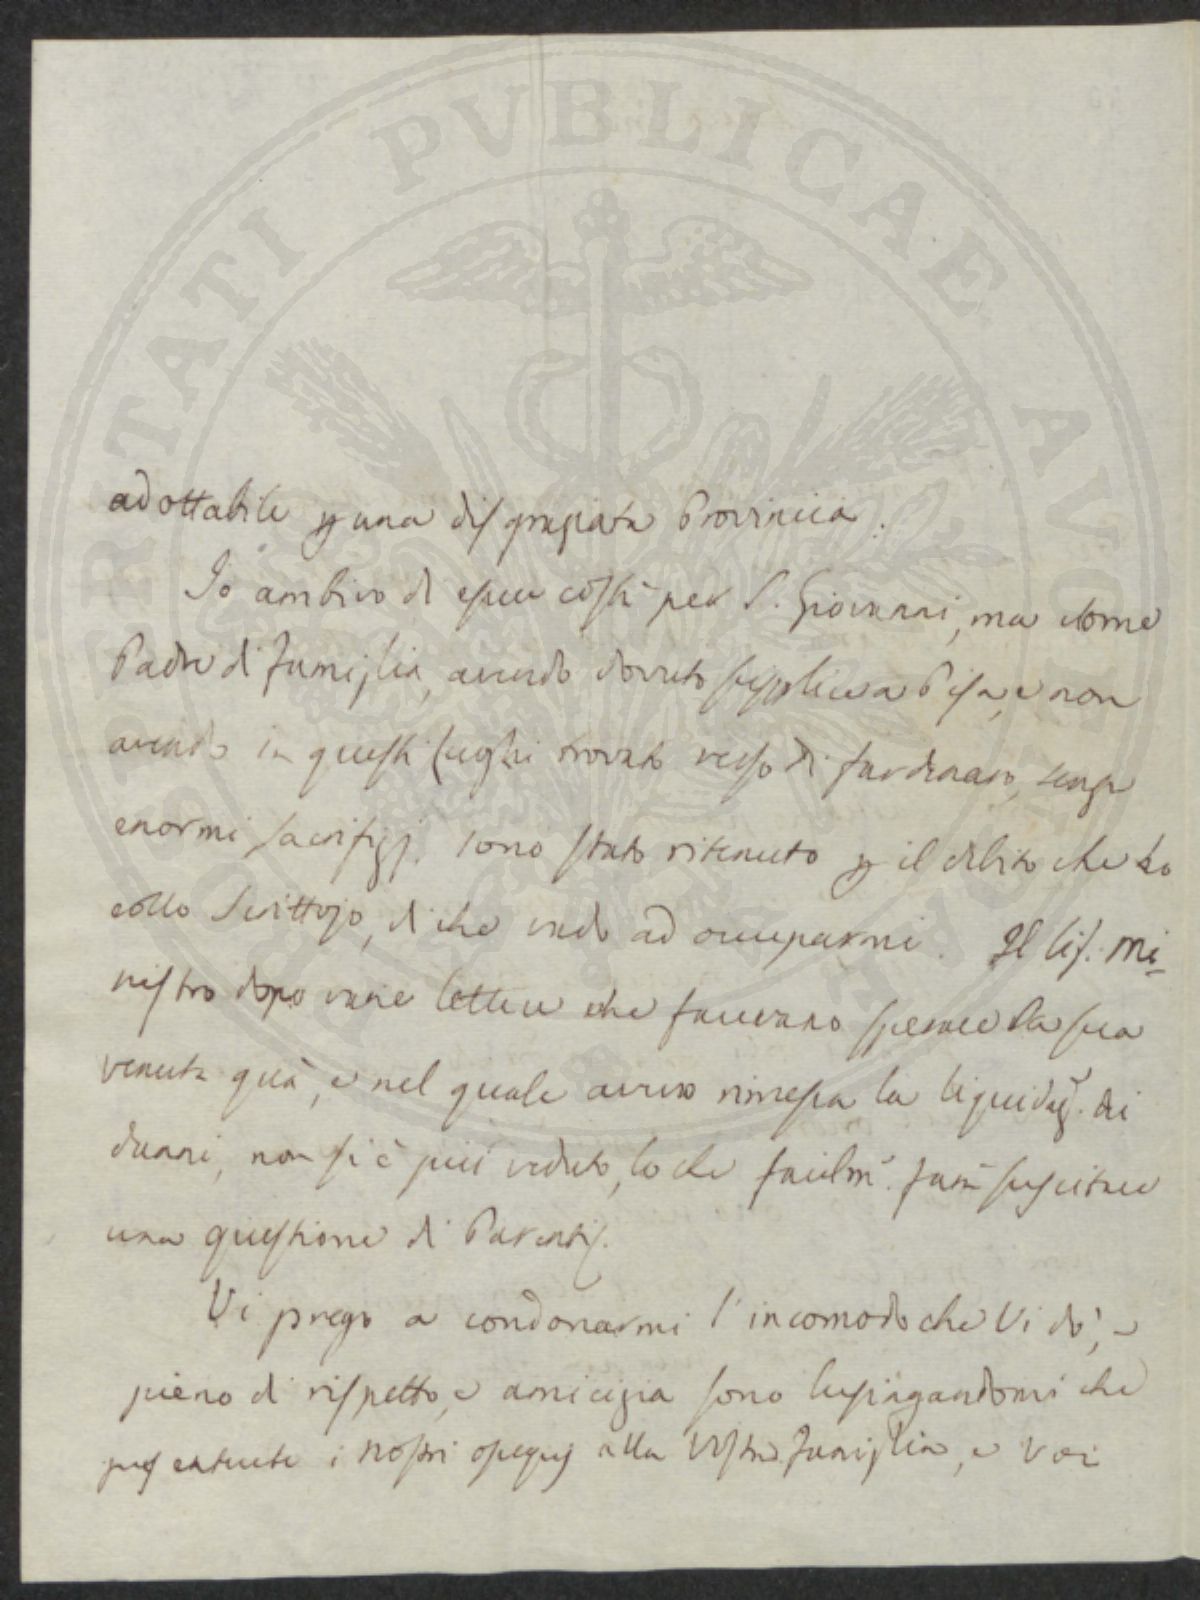 adottabile p una disgraziata Provincia.
Io ambivo di essere costà per S. Giovanni, ma come
Padre di famiglia, avendo dovuto supplire a Pisa, e non
avendo in questi luoghi trovato verso di far denaro, senza
enormi sacrifizj, sono stato ritenuto p il debito che ho
collo Scrittojo, di che vado ad occuparmi. Il Sig. Mi-
nistro dopo varie lettere che facevano sperare la sua
venuta quà, e nel quale avevo rimessa la liquidaz. dei
danni, non si è più veduto, lo che facilm. farà suscitare
una questione di
Vi prego a condonarmi l'incomodo che Vi dò, e
pieno di rispetto, e amicizia sono lusingandomi che
presenterete i nostri ossequj alla Vostra famiglia, e Voi
PROSPERITATI PVBLICAE AVGENDAE